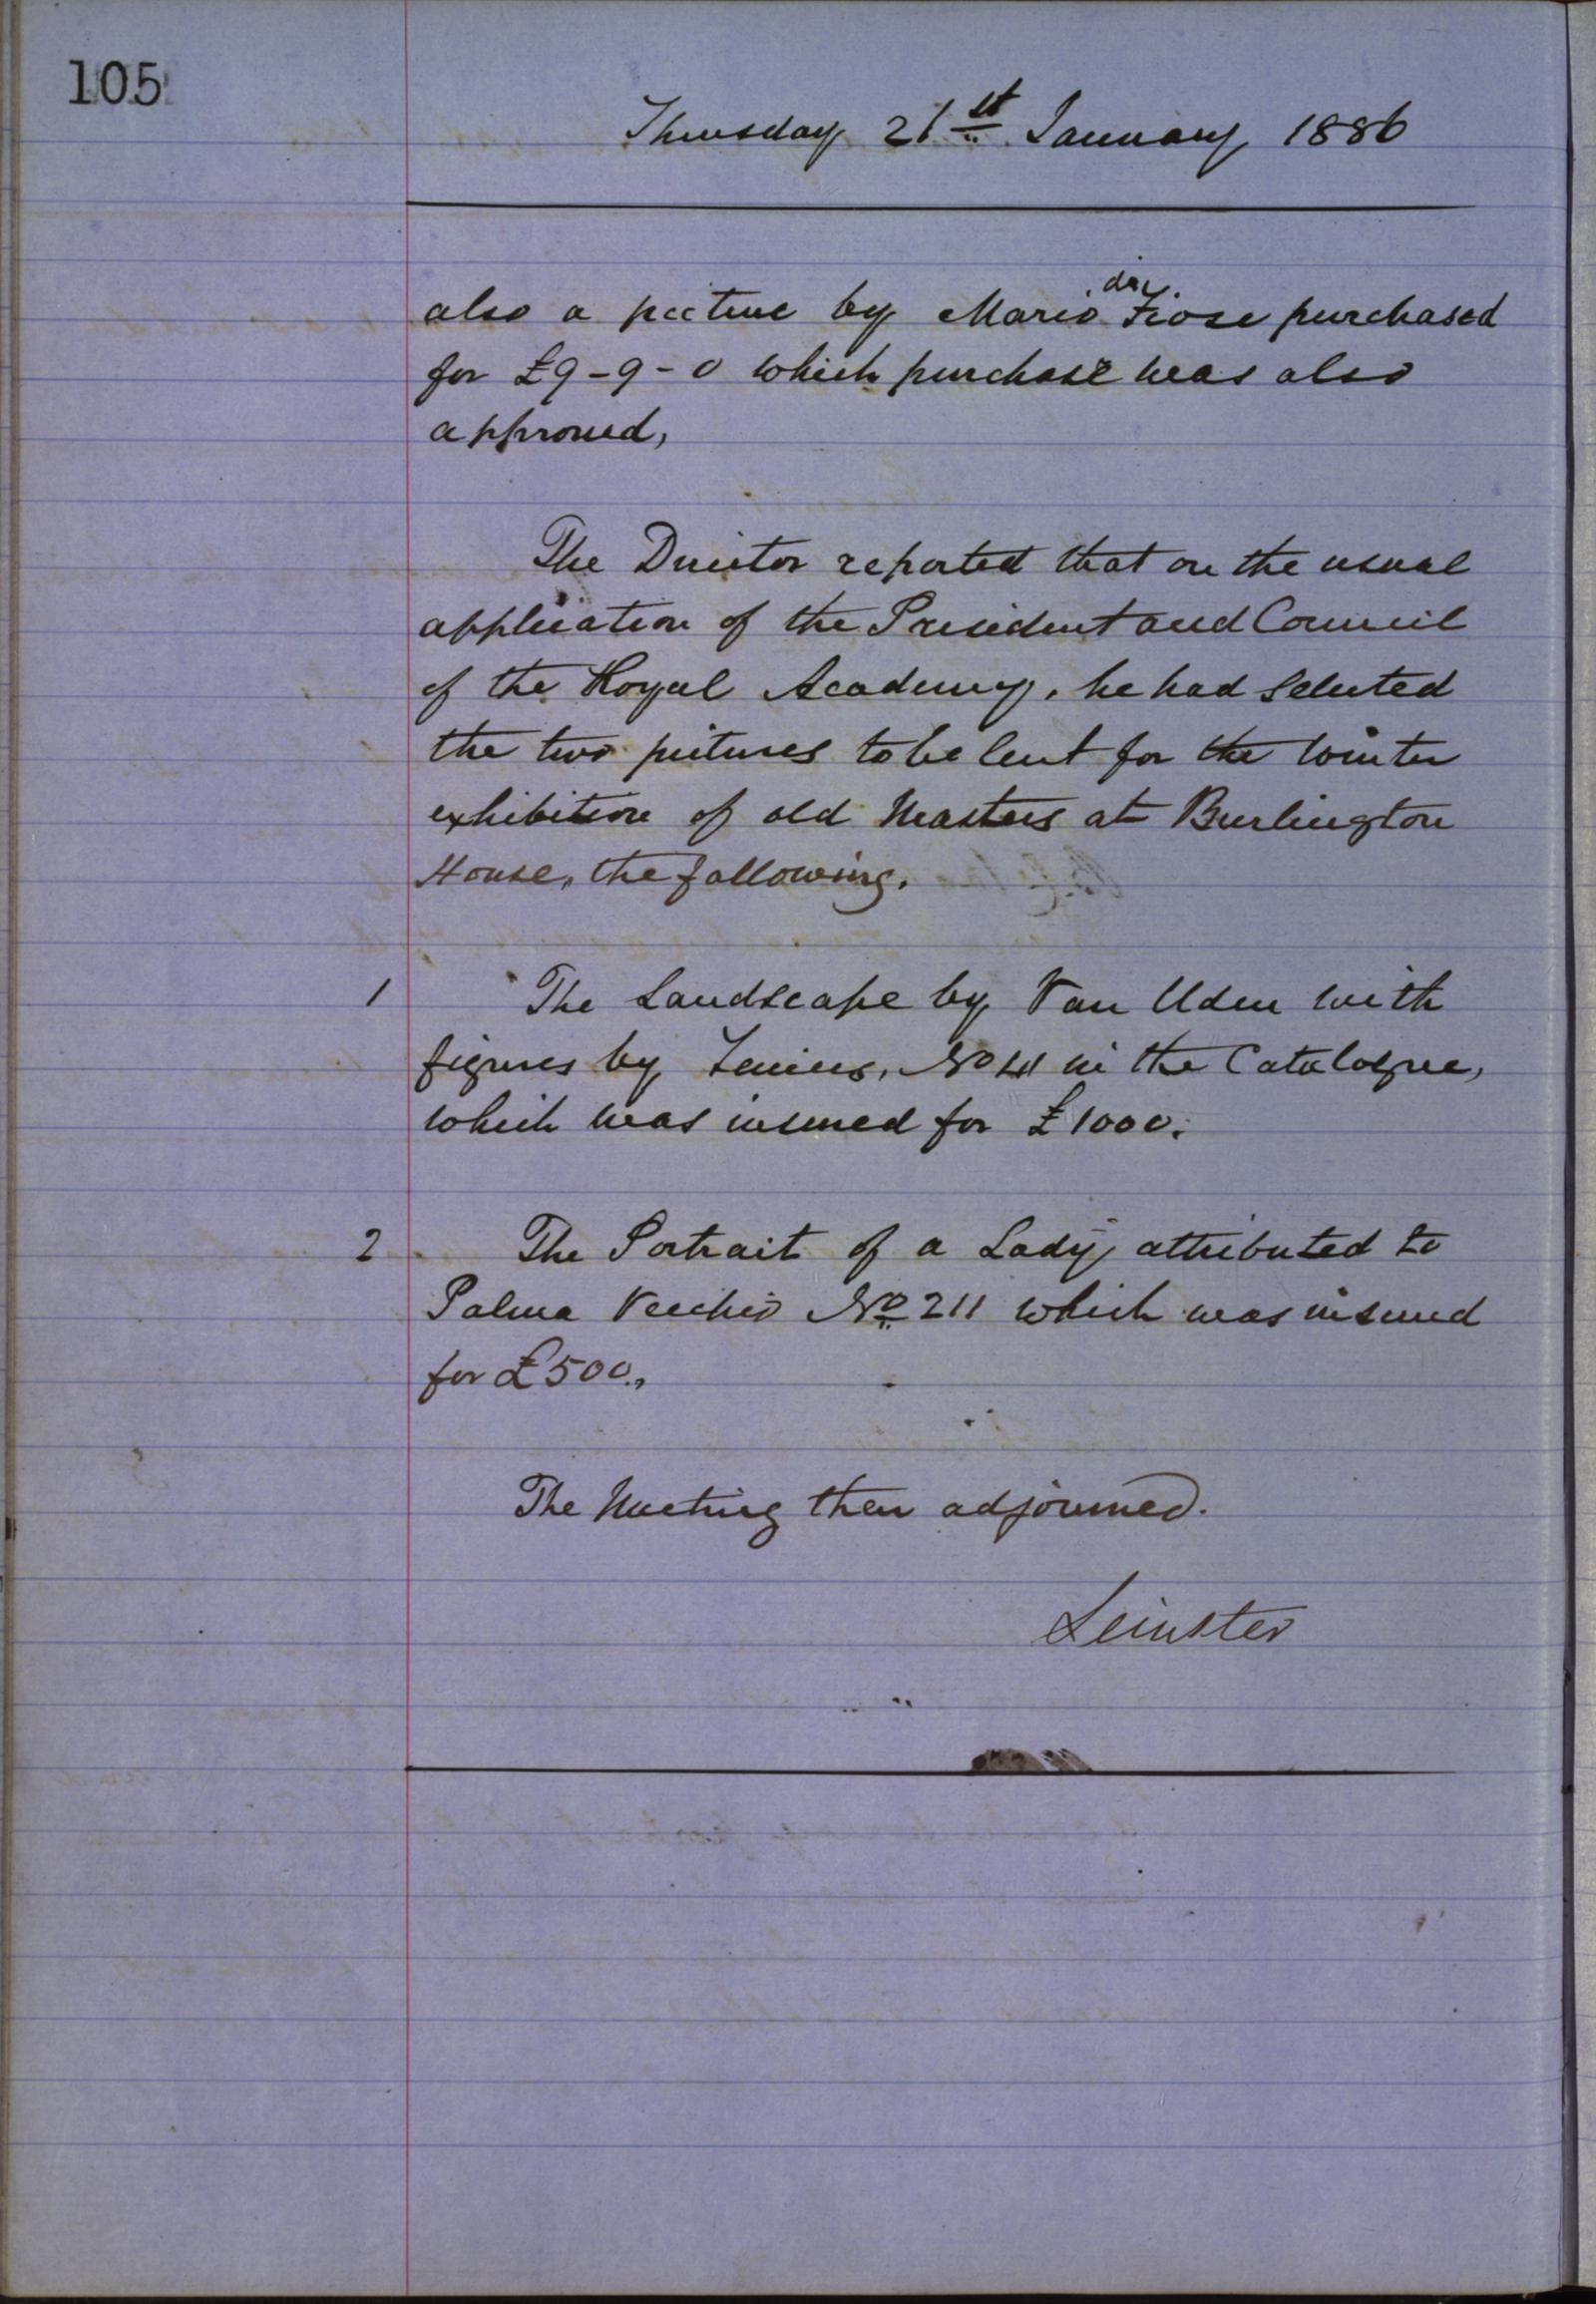 105
Thursday 21st January 1886
also a picture by Mario dei Fiose purchased
for £9-9-0 which purchase was also
approved,
The Director reported that on the usual
application of the President and Council
of the Royal Academy, he had selected
the two pictures to be lent for the Winter
exhibition of old Masters at Burlington
House, the following.
1 The Landscape by Van Uden with
figures by Teniers, No 41 in the Catalogue,
which was insured for £1000.
2 The Portrait of a Lady attributed to
Palma Vecchio No 211 which was insured
for £500.,
The Meeting then adjourned.
Leinster